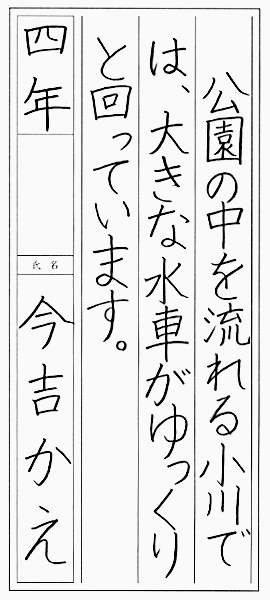 公園の中を流れる小川で
は、大きな水車がゆっくり
と回っています。
四年
氏名
今吉かえ